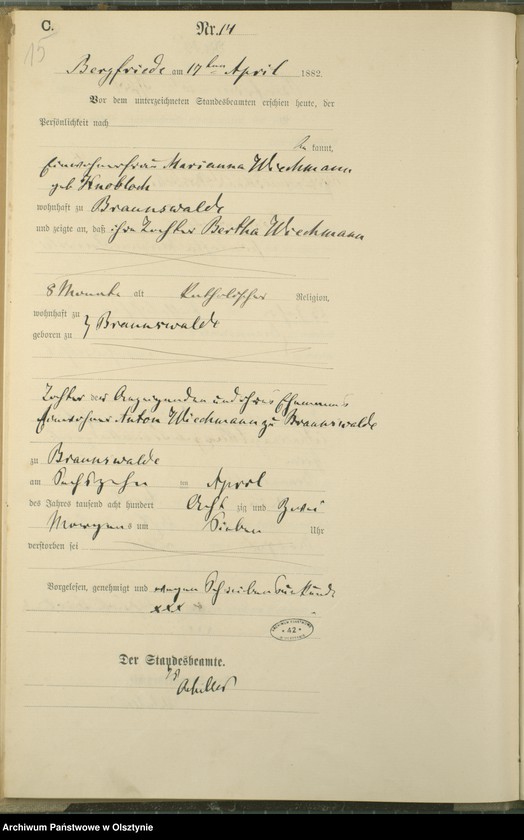 C.
Nr. 14
15
Bergfriede am 17ten April 1882.
Vor dem unterzeichneten Standesbeamten erschien heute, der
Persönlichkeit nach
be kannt,
Einwohnerfrau Marianna Wiechmann
geb. Knobloch
wohnhaft zu Braunswalde
und zeigte an, daß ihre Tochter Bertha Wiechmann
8 Monate alt katholischer Religion,
wohnhaft zu
geboren zu } Braunswalde
Tochter der Anzeigenden und ihres Ehemannes
Einwohner Anton Wiechmann zu Braunswalde
zu Braunswalde
am Sechszehn ten April
des Jahres tausend acht hundert Acht zig und Zwei
Morgens um Sieben Uhr
verstorben sei
Vorgelesen, genehmigt und wegen Schreibensunkunde
xxx
ARCHIWUM PAŃSTWOWE
* 42 *
W OLSZTYNIE
Der Standesbeamte.
Archiwum Państwowe w Olsztynie